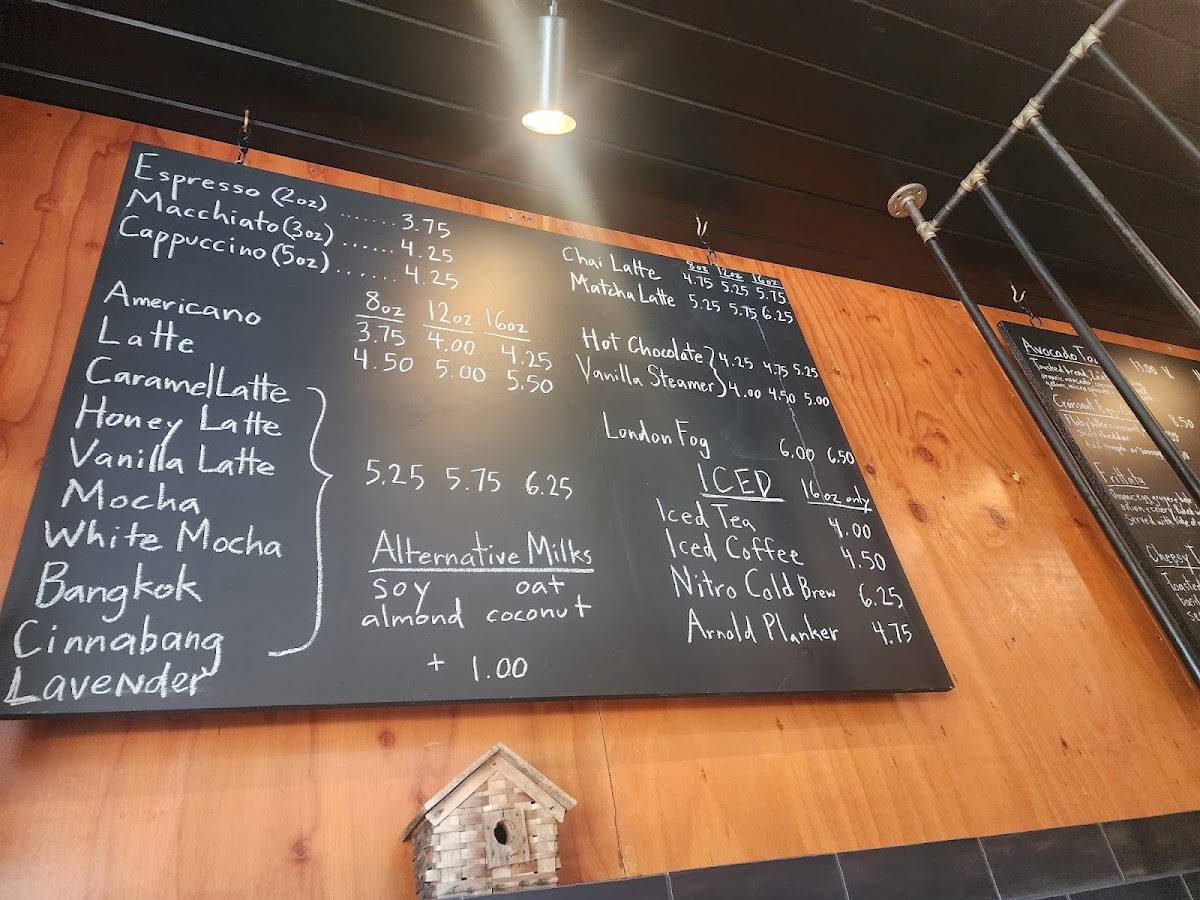 Espresso (2oz) ...... 3.75
Macchiato (3oz) ...... 4.25
Cappuccino (5oz) ...... 4.25
8oz 12oz 16oz
Americano 3.75 4.00 4.25
Latte 4.50 5.00 5.50
Caramel Latte
Honey Latte
Vanilla Latte
Mocha 5.25 5.75 6.25
White Mocha
Bangkok
Cinnabang
Lavender
Alternative Milks
soy oat
almond coconut
+ 1.00
8oz 12oz 16oz
Chai Latte 4.75 5.25 5.75
Matcha Latte 5.25 5.75 6.25
Hot Chocolate 4.25 4.75 5.25
Vanilla Steamer 4.00 4.50 5.00
London Fog 6.00 6.50
ICED 16oz only
Iced Tea 4.00
Iced Coffee 4.50
Nitro Cold Brew 6.25
Arnold Planker 4.75
Avocado 11.00 V
Toasted bread
organic avocado
Croissant
8.50
cheddar
Frittata
Served with
Cheesy
Toasted